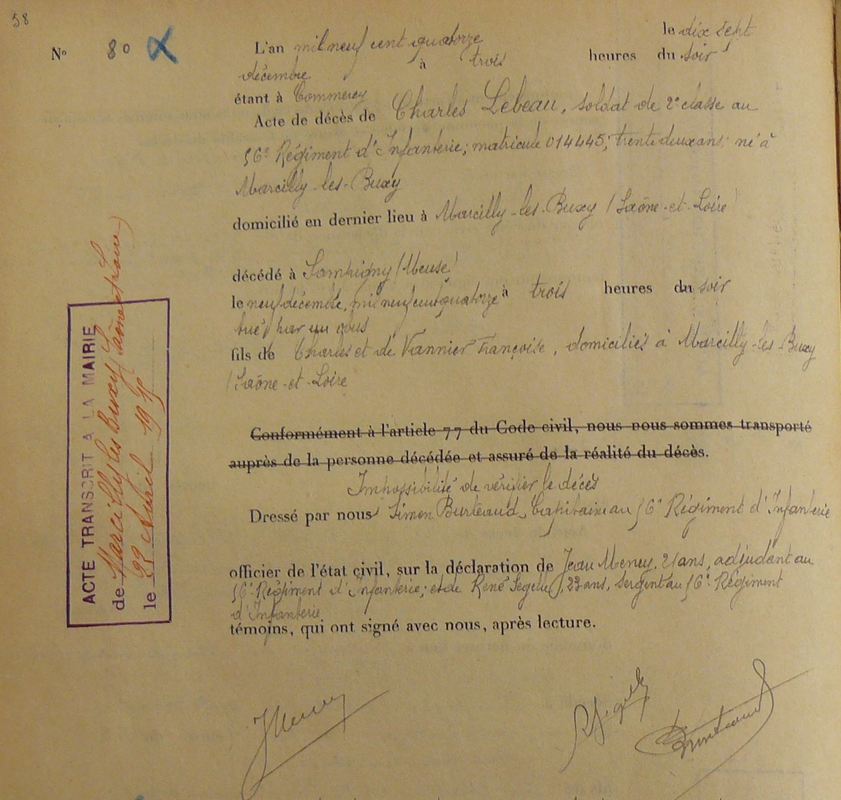 58
N° 80
L'an mil neuf cent quatorze le dix sept
décembre à trois heures du soir
étant à Commercy
Acte de décès de Charles Lebeau, soldat de 2e classe au
56e Régiment d'Infanterie; matricule 014445; trente deux ans; né à
Marcilly-les-Buxy
domicilié en dernier lieu à Marcilly-les-Buxy (Saône-et-Loire)
décédé à Sampigny (Meuse)
le neuf décembre, mil neuf cent quatorze à trois heures du soir
tué par un obus
fils de Charles et de Vannier Françoise, domiciliés à Marcilly-les-Buxy
(Saône-et-Loire
Conformément à l'article 77 du Code civil, nous nous sommes transporté
auprès de la personne décédée et assuré de la réalité du décès.
Impossibilité de vérifier le décès
Dressé par nous Simon Burteaud, Capitaine au 56e Régiment d'Infanterie
officier de l'état civil, sur la déclaration de Jean Meney, 21 ans, adjudant au
56e Régiment d'Infanterie; et de René 23 ans, sergent au 56e Régiment
d'Infanterie
témoins, qui ont signé avec nous, après lecture.
ACTE TRANSCRIT A LA MAIRIE
de Marcilly les Buxy (Saône et Loire)
le 23 Avril 1915